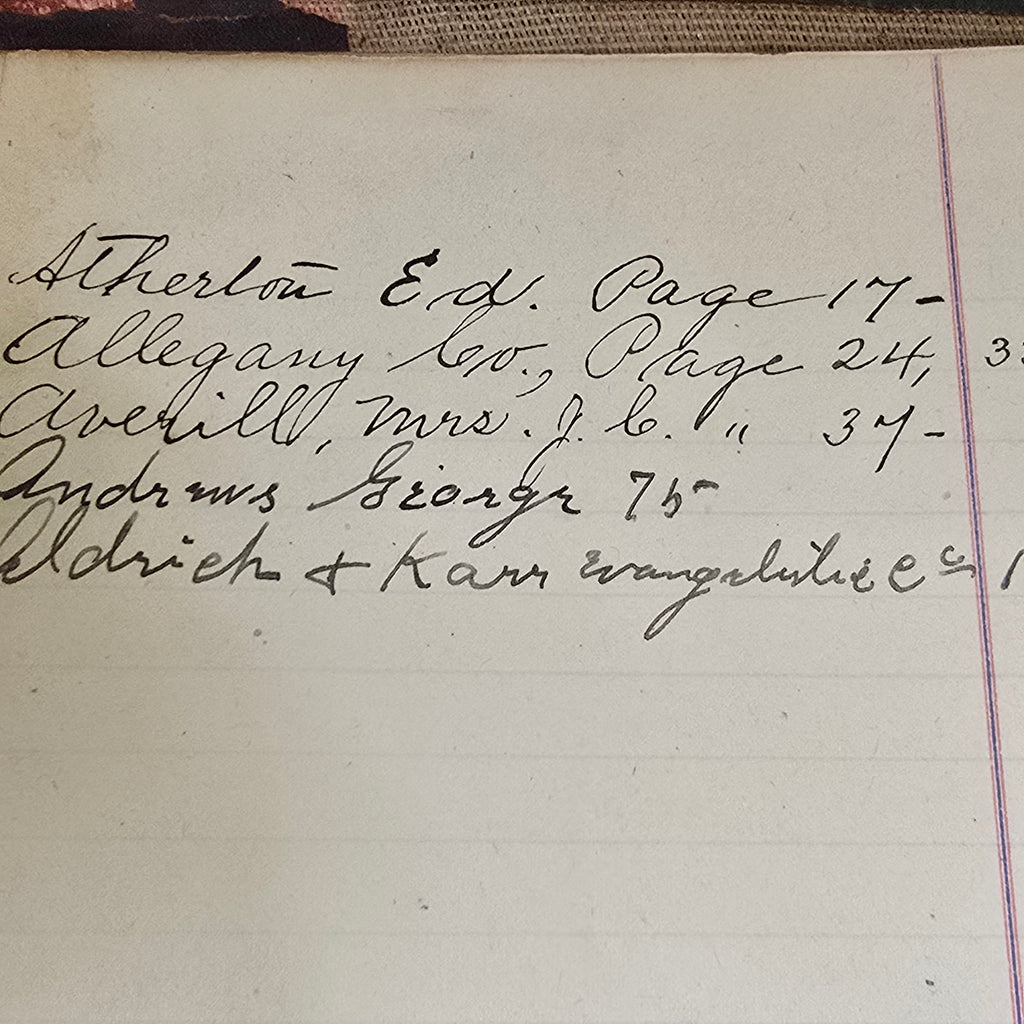 Atherton Ed. Page 17-
Allegany Co., Page 24, 33
Averill, Mrs. J. C. " 37-
Andrews George 75
Aldrich & Karr Evangelistic Co 1